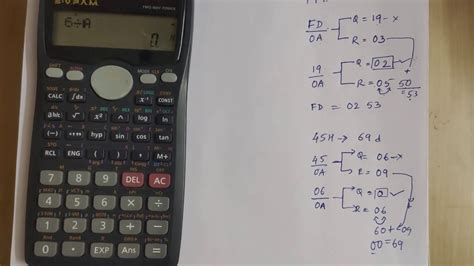 TWO WAY POWER
6÷A
0
SHIFT
ALPHA
MODE
ON
CALC
∫dx
x⁻¹
CONST
hyp
sin
cos
tan
RCL
ENG
(
)
,
M+
7
8
9
DEL
AC
4
5
6
×
÷
1
2
3
+
−
0
.
EXP
Ans
=
FD
0A
Q = 19
R = 03
19
0A
Q = 02
R = 05 50
= 53
FD = 02 53
45H → 69 d
45
0A
Q = 06
R = 09
06
0A
Q = 0
R = 06
60 + 09
00 = 69